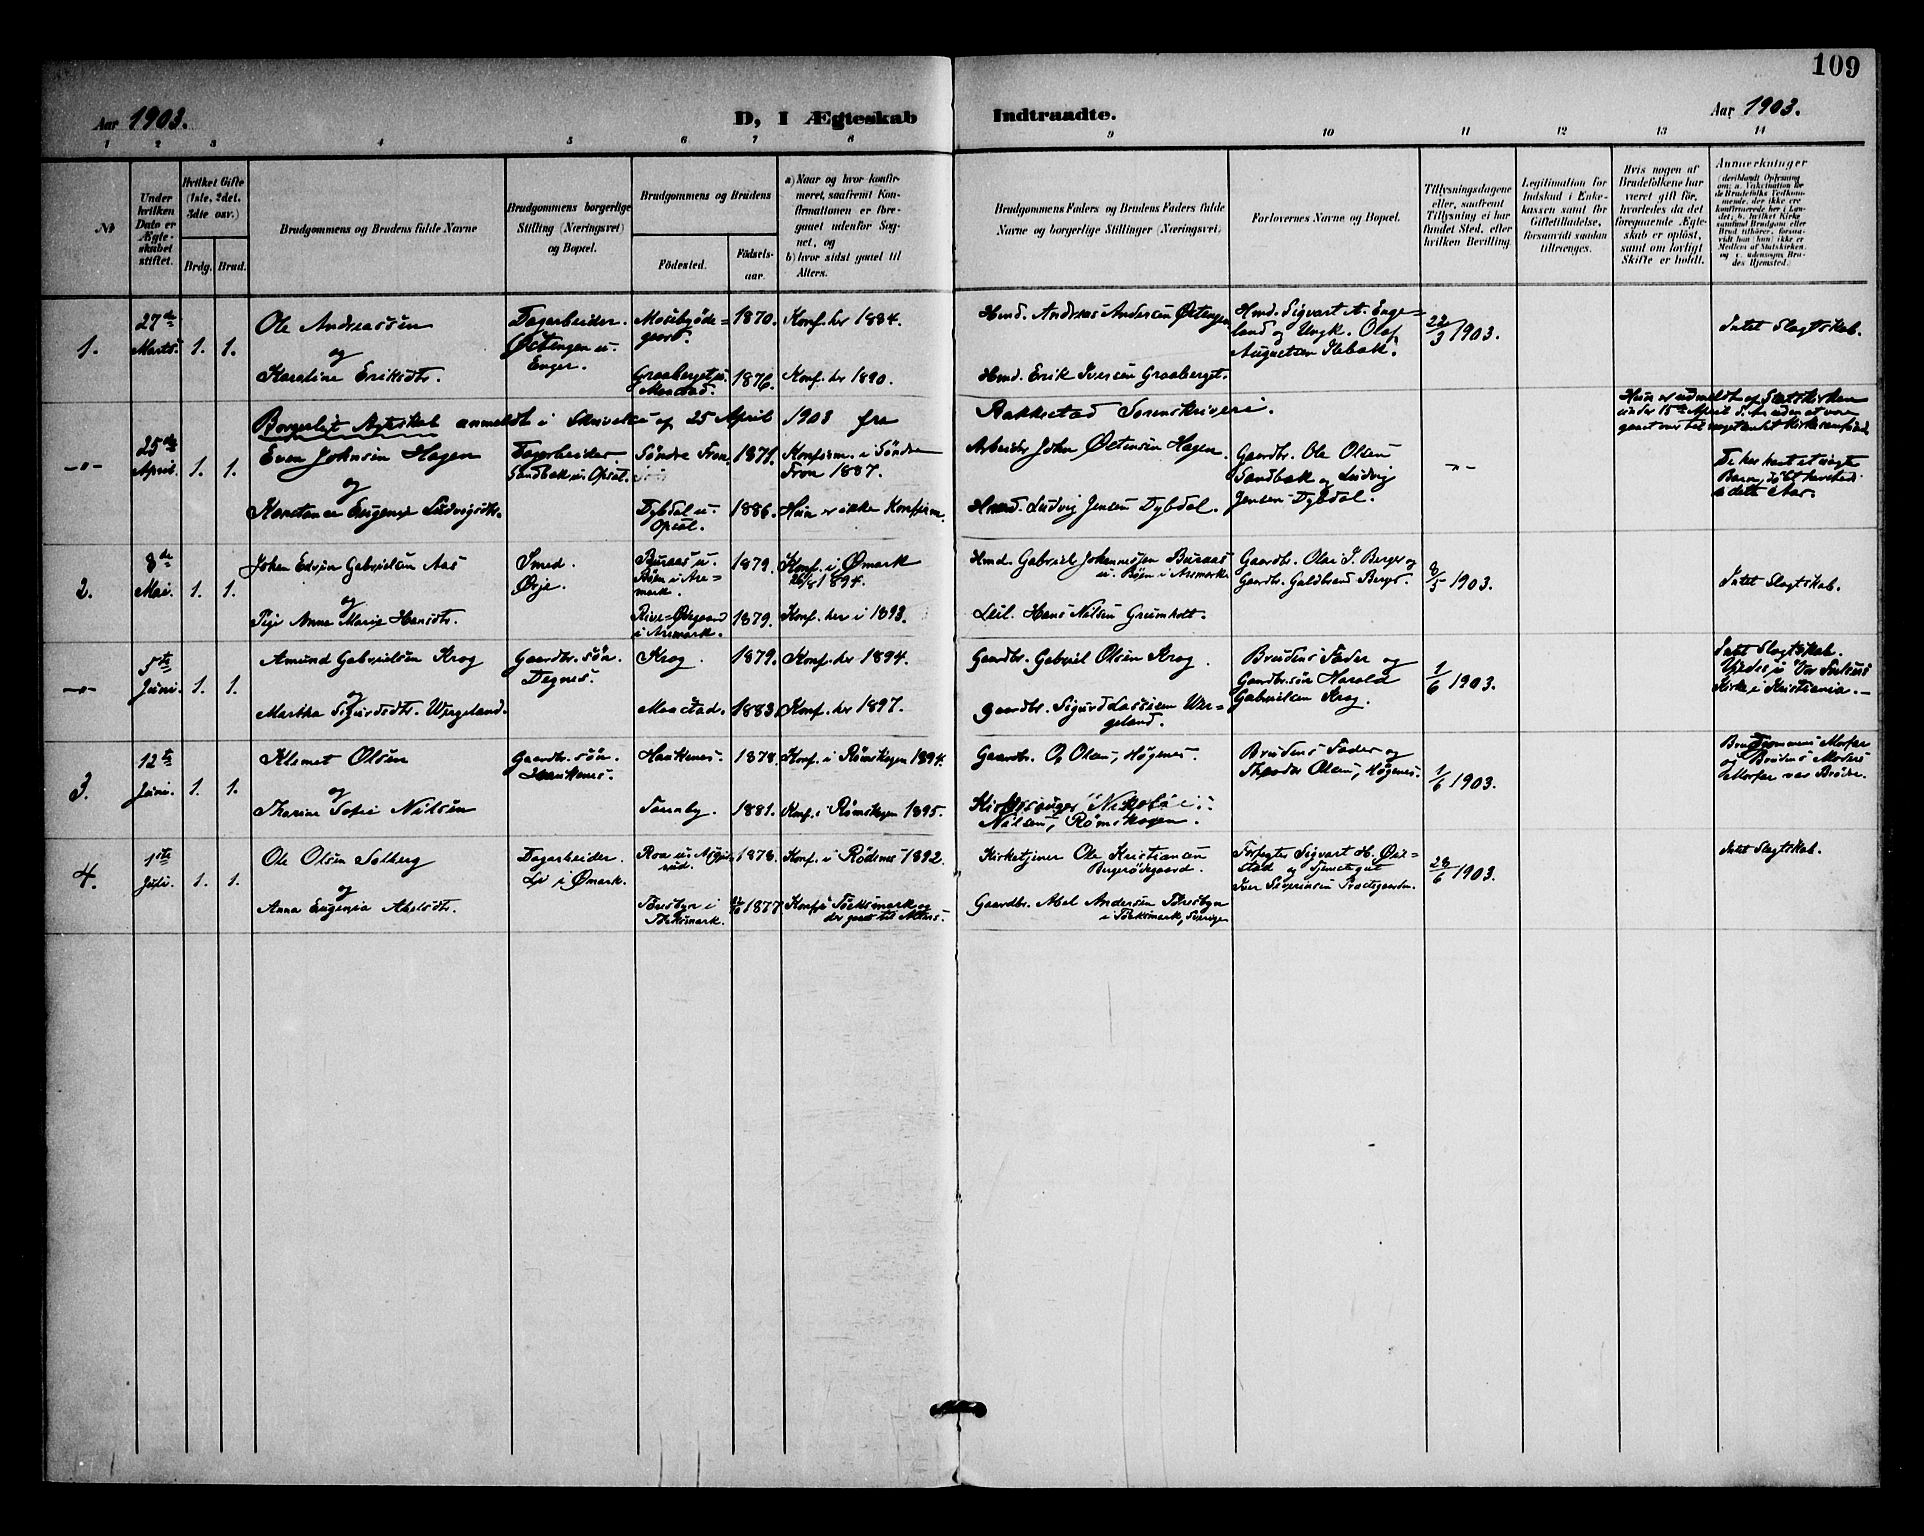 109
Aar 1903. D, I Ægteskab Indtraadte. Aar 1903.
1 2 3 4 5 6 7 8 9 10 11 12 13 14
№
Under hvilken Dato er Ægteskabet stiftet.
Hvilket Gifte (1ste, 2det, 3die osv.)
Brdg. Brud.
Brudgommens og Brudens fulde Navne
Brudgommens borgerlige Stilling (Næringsvei) og Bopæl.
Brudgommens og Brudens
Fødested. Fødselsaar.
a) Naar og hvor konfirmeret, saafremt Konfirmationen er foregaaet udenfor Sognet, og
b) hvor sidst gaaet til Alters.
Brudgommens Faders og Brudens Faders fulde Navne og borgerlige Stillinger (Næringsvei)
Forlovernes Navne og Bopæl.
Tillysningsdagene eller, saafremt Tillysning ei har fundet Sted, efter hvilken Bevilling.
Legitimation for Indskud i Enkekassen samt for Giftetilladelse, forsaavidt saadan tiltrænges.
Hvis nogen af Brudefolkene har været gift før, hvorledes da det foregaaende Ægteskab er opløst, samt om lovligt Skifte er holdt.
Anmerkninger
1. 27de Marts. 1. 1.
Ole Andreassen
og
Karoline Eriksdtr.
Dagarbeider.
Østengen u.
Enger.
1870. Konf. her 1884.
Graaberget u. 1876. Konf. her 1890.
Hmd. Andreas Andersen Østengen
Hmd. Erik Iversen Graaberget.
Hmd. Sigvart A. Engeland og Ungk. Olaf Augustsen
22/3 1903.
Intet Slagtskab.
Borgerligt Ægteskab anmeldt i Skrivelse af 25 April 1903 fra Rakkestad Sorenskriveri.
Hun er udmeldt af Statskirken under 15de April
-o- 25de April. 1. 1.
Even Johnsen Hagen
og
Konstance Eugenie Ludvigsdtr.
Dagarbeider
Sandbak u. Opsal.
Søndre Fron. 1871. Konfirm. i Søndre Fron 1887.
Dybdal u. Opsal. 1886. Hun er ikke Konfirm.
Arbeider John Østensen Hagen.
Hmd. Ludvig Jensen Dybdal.
Gaardbr. Ole Olsen Sandbak og Ludvig Jensen Dybdal.
-"-
2. 8de Mai. 1. 1.
Johan Edvin Gabrielsen Aas
og
Pige Anna Marie Hansdtr.
Smed.
Ørje.
Buraas u. Bøen i Aremark. 1879. Konf. i Ømark 26/8 1894.
i Aremark. 1879. Konf. her i 1893.
Hmd. Gabriel Johannesen Buraas u. Bøen i Aremark
Leil. Hans Nilsen Grumholt.
Gaardbr. Olai J. Berger og Gaardbr. Guldbrand Berger.
8/5 1903.
Intet Slagtskab.
-o- 5te Juni. 1. 1.
Amund Gabrielsen Krog
og
Martha Sigurdsdtr. Wergeland.
Gaardbr. søn.
Degnes.
Krog. 1879. Konf. her 1894.
Maastad. 1883. Konf. her 1897.
Gaardbr. Gabriel Olsen Krog.
Gaardbr. Sigurd Lassesen Wergeland.
Brudens Fader og Gaardbr.søn Harald Gabrielsen Krog.
1/6 1903.
Intet Slagtskab. Viedes i Vor Frelsers Kirke i Kristiania.
3. 12te Juni. 1. 1.
Klemet Olsen
og
Thorine Sofie Nilsen
Gaardbr. søn.
Haukenes.
Haukenes. 1878. Konf. i Rømskogen 1894.
Tørnby. 1881. Konf. i Rømskogen 1895.
Gaardbr. O. Olsen, Høgenes.
Kirkesanger Nikolai Nilsen, Rømskogen.
Brudens Fader og Theodor Olsen, Høgenes.
1/6 1903.
Brudgommens Morfar og Brudens Moders Morfar var Brødre.
4. 1ste Juli. 1. 1.
Ole Olsen Solberg
og
Anna Eugenia Abelsdtr.
Dagarbeider.
Li i Ømark.
1878. Konf. i Rødenes 1892.
Thesbyn i Töcksmark. 1877 Konf. i Töcksmark og der gaaet til Alters.
Kirketjener Ole Kristiansen Bergerødegaard.
Gaardbr. Abel Andersen Thesbyn i Töcksmark, Sverige
Forpagter Sigvart H. Ørstad og Tjenestegut Iver Severinsen
28/6 1903.
Intet Slagtskab.